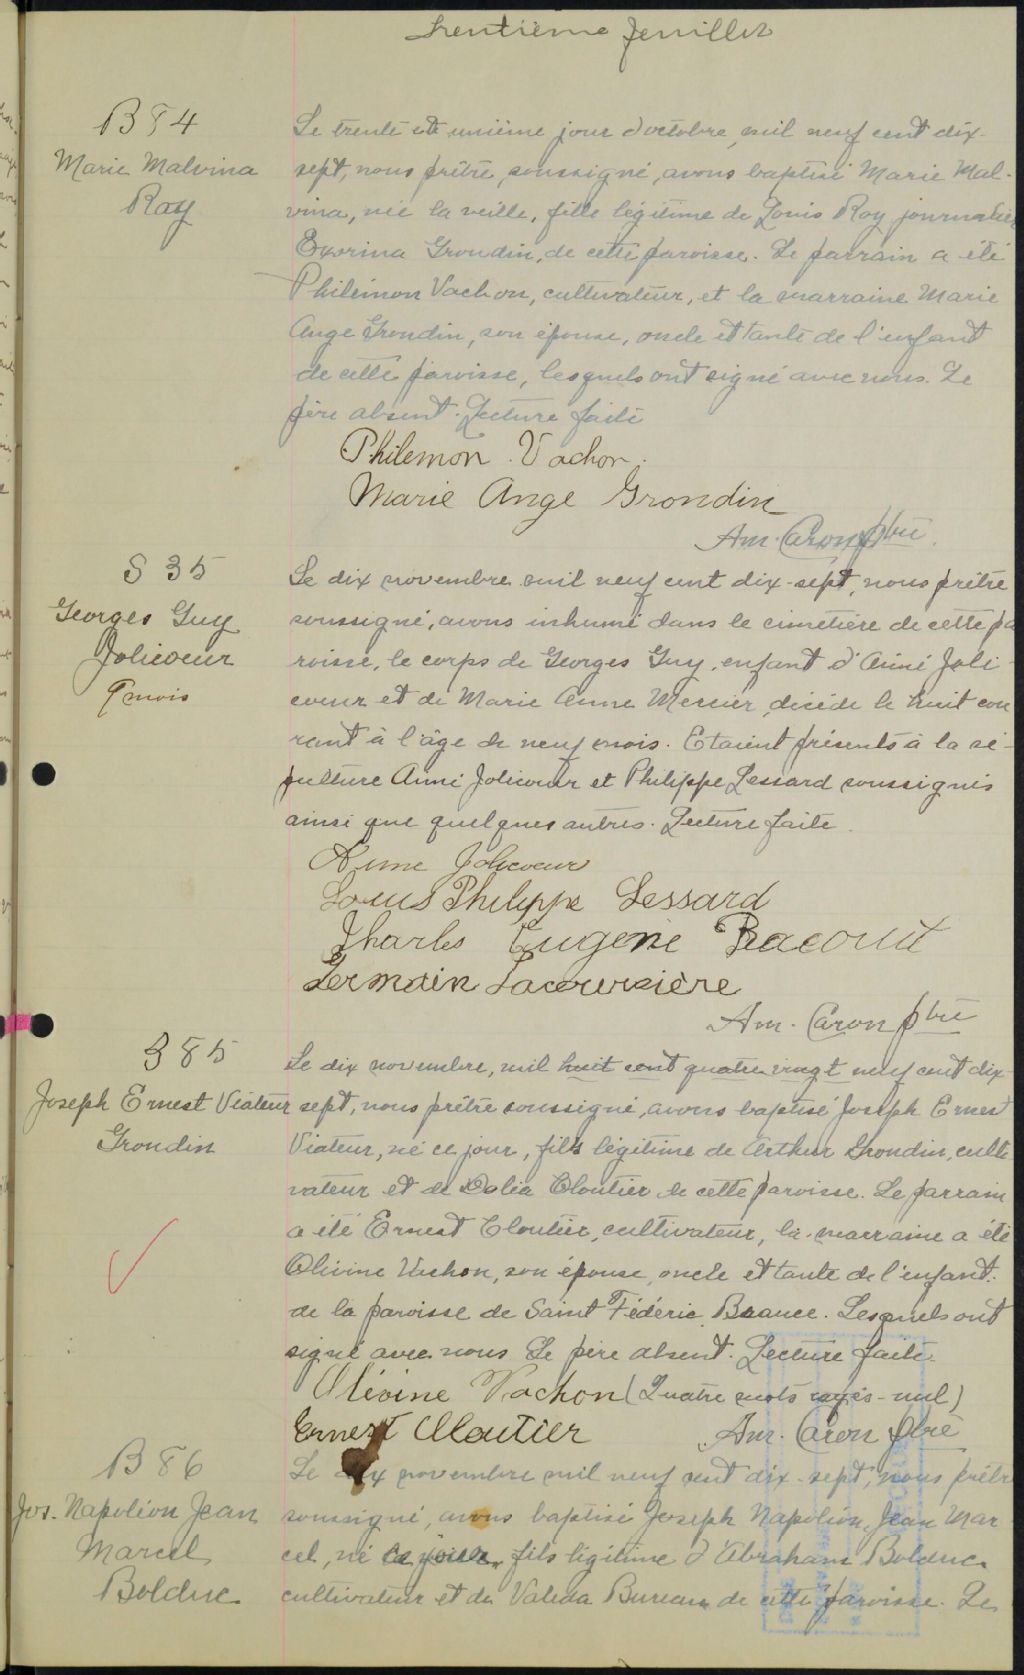 Trentième feuillet
B 84
Marie Malvina
Roy
Le trente et unième jour d'octobre, mil neuf cent dix-
sept, nous prêtre, soussigné, avons baptisé Marie Mal-
vina, née la veille, fille légitime de Louis Roy journalier
Exorina Grondin, de cette paroisse. Le parrain a été
Philémon Vachon, cultivateur, et la marraine Marie
Ange Grondin, son épouse, oncle et tante de l'enfant
de cette paroisse, lesquels ont signé avec nous. Le
père absent. Lecture faite
Philemon Vachon.
Marie Ange Grondin
Am. Caron ptre.
S 35
Georges Guy
Jolicoeur
9 mois
Le dix novembre mil neuf cent dix-sept, nous prêtre
soussigné, avons inhumé dans le cimetière de cette pa
roisse, le corps de Georges Guy, enfant d'Aimé Joli-
coeur et de Marie Anne Mercier, décédé le huit cou
rant à l'âge de neuf mois. Etaient présents à la sé-
pulture Aimé Jolicoeur et Philippe Lessard soussignés
ainsi que quelques autres. Lecture faite.
Aime Jolicoeur
Louis Philippe Lessard
Charles Eugène
Germain Lacoursière
Am. Caron ptre
B 85
Joseph Ernest Viateur
Grondin
Le dix novembre, mil huit cent quatre vingt neuf cent dix-
sept, nous prêtre soussigné, avons baptisé Joseph Ernest
Viateur, né ce jour, fils légitime de Arthur Grondin, culti
vateur et de Dalia Cloutier de cette paroisse. Le parrain
a été Ernest Cloutier, cultivateur, la marraine a été
Olivine Vachon, son épouse, oncle et tante de l'enfant.
de la paroisse de Saint Fédéric, Beauce. Lesquels ont
signé avec nous Le père absent. Lecture faite.
Olévine Vachon (Quatre mots rayés - nul)
Ernest Cloutier Am. Caron ptre
B 86
Jos. Napoléon Jean
Marcel
Bolduc
Le dix novembre mil neuf cent dix-sept, nous prêtre
soussigné, avons baptisé Joseph Napoléon, Jean Mar-
cel, né ce jour, fils légitime d'Abraham Bolduc
cultivateur et de Valéda Bureau de cette paroisse. Le